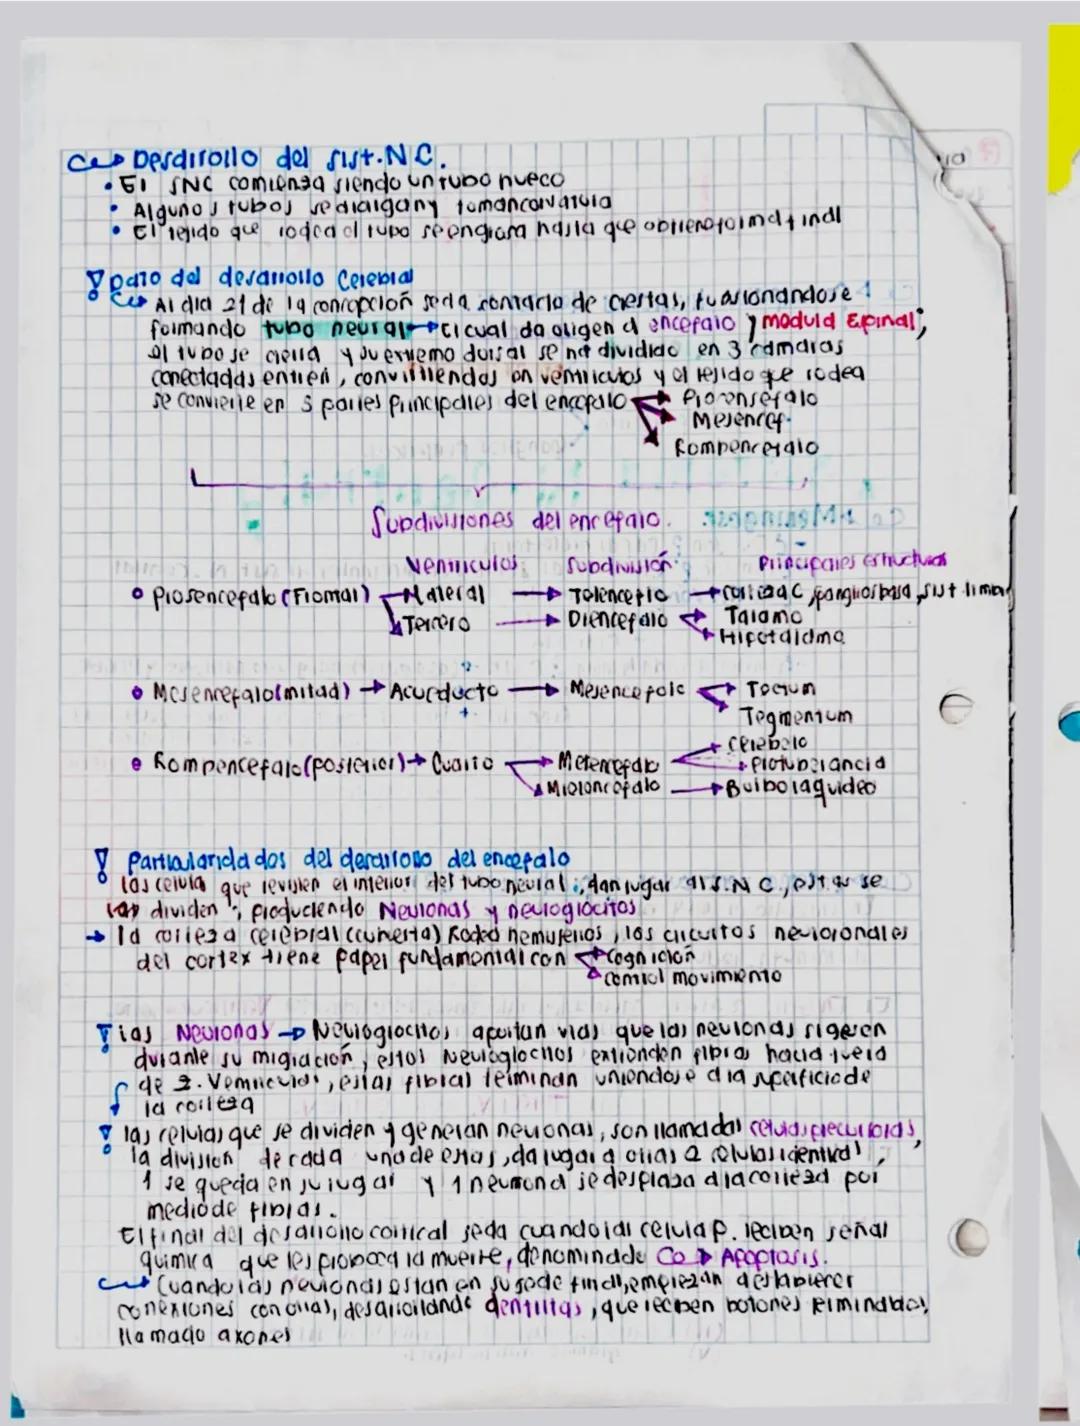 Desarrollo del sist. N C.
• El SNC comienza siendo un tubo hueco
• Algunos tubos se dialgan y toman corvatura
• El tejido que rodea el tubo se engrosa hasta que obtiene forma final
Dato del desarrollo Cerebral
Al dia 21 de la concepción se da contacto de crestas, fusionandose
formando tubo neural → el cual da origen al encefalo y medula Espinal,
el tubo se cierra y su extremo dorsal se ha dividido en 3 camaras
conectadas entre si, convirtiendos en ventriculos y el tejido que rodea
se convierte en 3 partes Principales del encefalo → Proensefalo
Mesencef.
Rompencefalo
Subdivisiones del encefalo.
Ventriculos Subdivisión: Principales estructuras
• Prosencefalo (Frontal) → lateral → Telencef → corteza C, ganglios basa, sist. limb
Tercero → Diencefalo → Talamo
Hipotalamo
• Mesencefalo (mitad) → Acueducto → Mesencefalo → Tectum
Tegmentum
Cerebelo
• Rompencefalo (posterior) → Cuarto → Metencefalo → Protuberancia
Mieloncefalo → Bulbo raquideo
Particularidades del desarrollo del encefalo
las celula que revisten el interior del tubo neural, dan lugar al S.N C., estas se
dividen, produciendo Neuronas y neurogliocitos
→ la corteza cerebral (cubierta) Rodea hemisferios, los circuitos neuronales
del cortex tiene papel fundamental con → Cognición
control movimiento
las Neuronas → Neurogliocitos aportan vias que las neuronas sigeren
durante su migración, estos Neurogliocitos extienden fibras hacia fuera
de 2. Ventriculos, estas fibras terminan uniendose a la superficie de
la corteza
las celulas que se dividen y generan neuronas, son llamadas celulas precursoras,
la división de cada una de estas, da lugar a otras 2 celulas identicas,
1 se queda en su lugar y 1 neurona se desplaza a la corteza por
medio de fibras.
El final del desarrollo cortical se da cuando las celula p. reciben señal
quimica que les proboca la muerte, denominado → Apoptosis.
Cuando las neuronas estan en su sede final, empiezan a establecer
conexiones con otras, desarrollando dentritas, que reciben botones terminales,
llamado axones